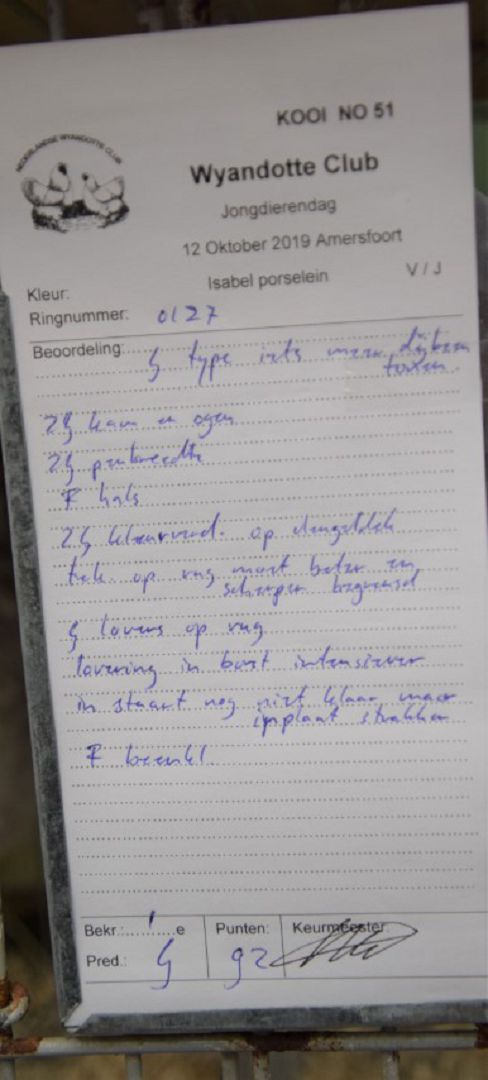 KOOI NO 51
NEDERLANDSE WYANDOTTE CLUB
Wyandotte Club
Jongdierendag
12 Oktober 2019 Amersfoort
Kleur: Isabel porselein V / J
Ringnummer: 0127
Beoordeling: G type iets meer dijben
tonen
ZG kam en ogen
ZG
F hals
ZG kleurverd. op vleugeldek
tek. op rug moet beter en
scherper begrensd
G lovers op rug
lovering in borst intensiever
in staart nog niet klaar maar
strakker
F beenkl.
Bekr.:.........e Punten: Keurmeester:
Pred.: G 92